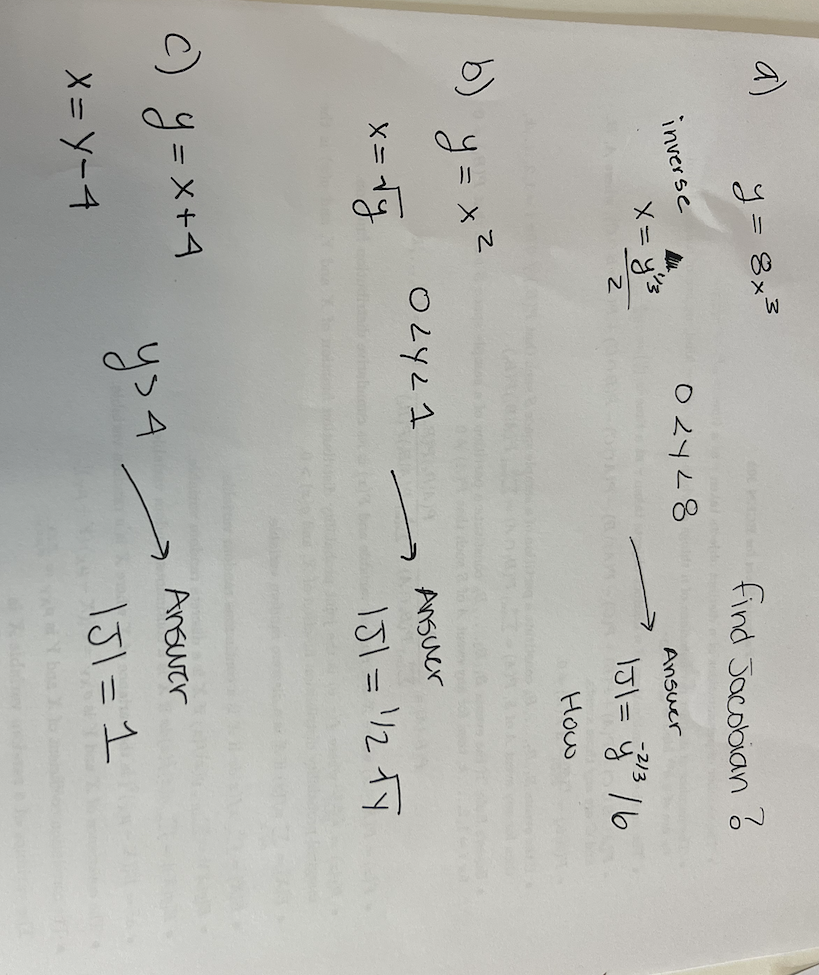 a) y = 8x³ 0<y<8 find Jacobian ?
inverse x = y^1/3 / 2 → Answer |J| = y^-2/3 / 6
How
b) y = x²
x = √y 0<y<1 → Answer |J| = 1/2 √y
c) y = x+4
x = y-4 y>4 → Answer |J| = 1